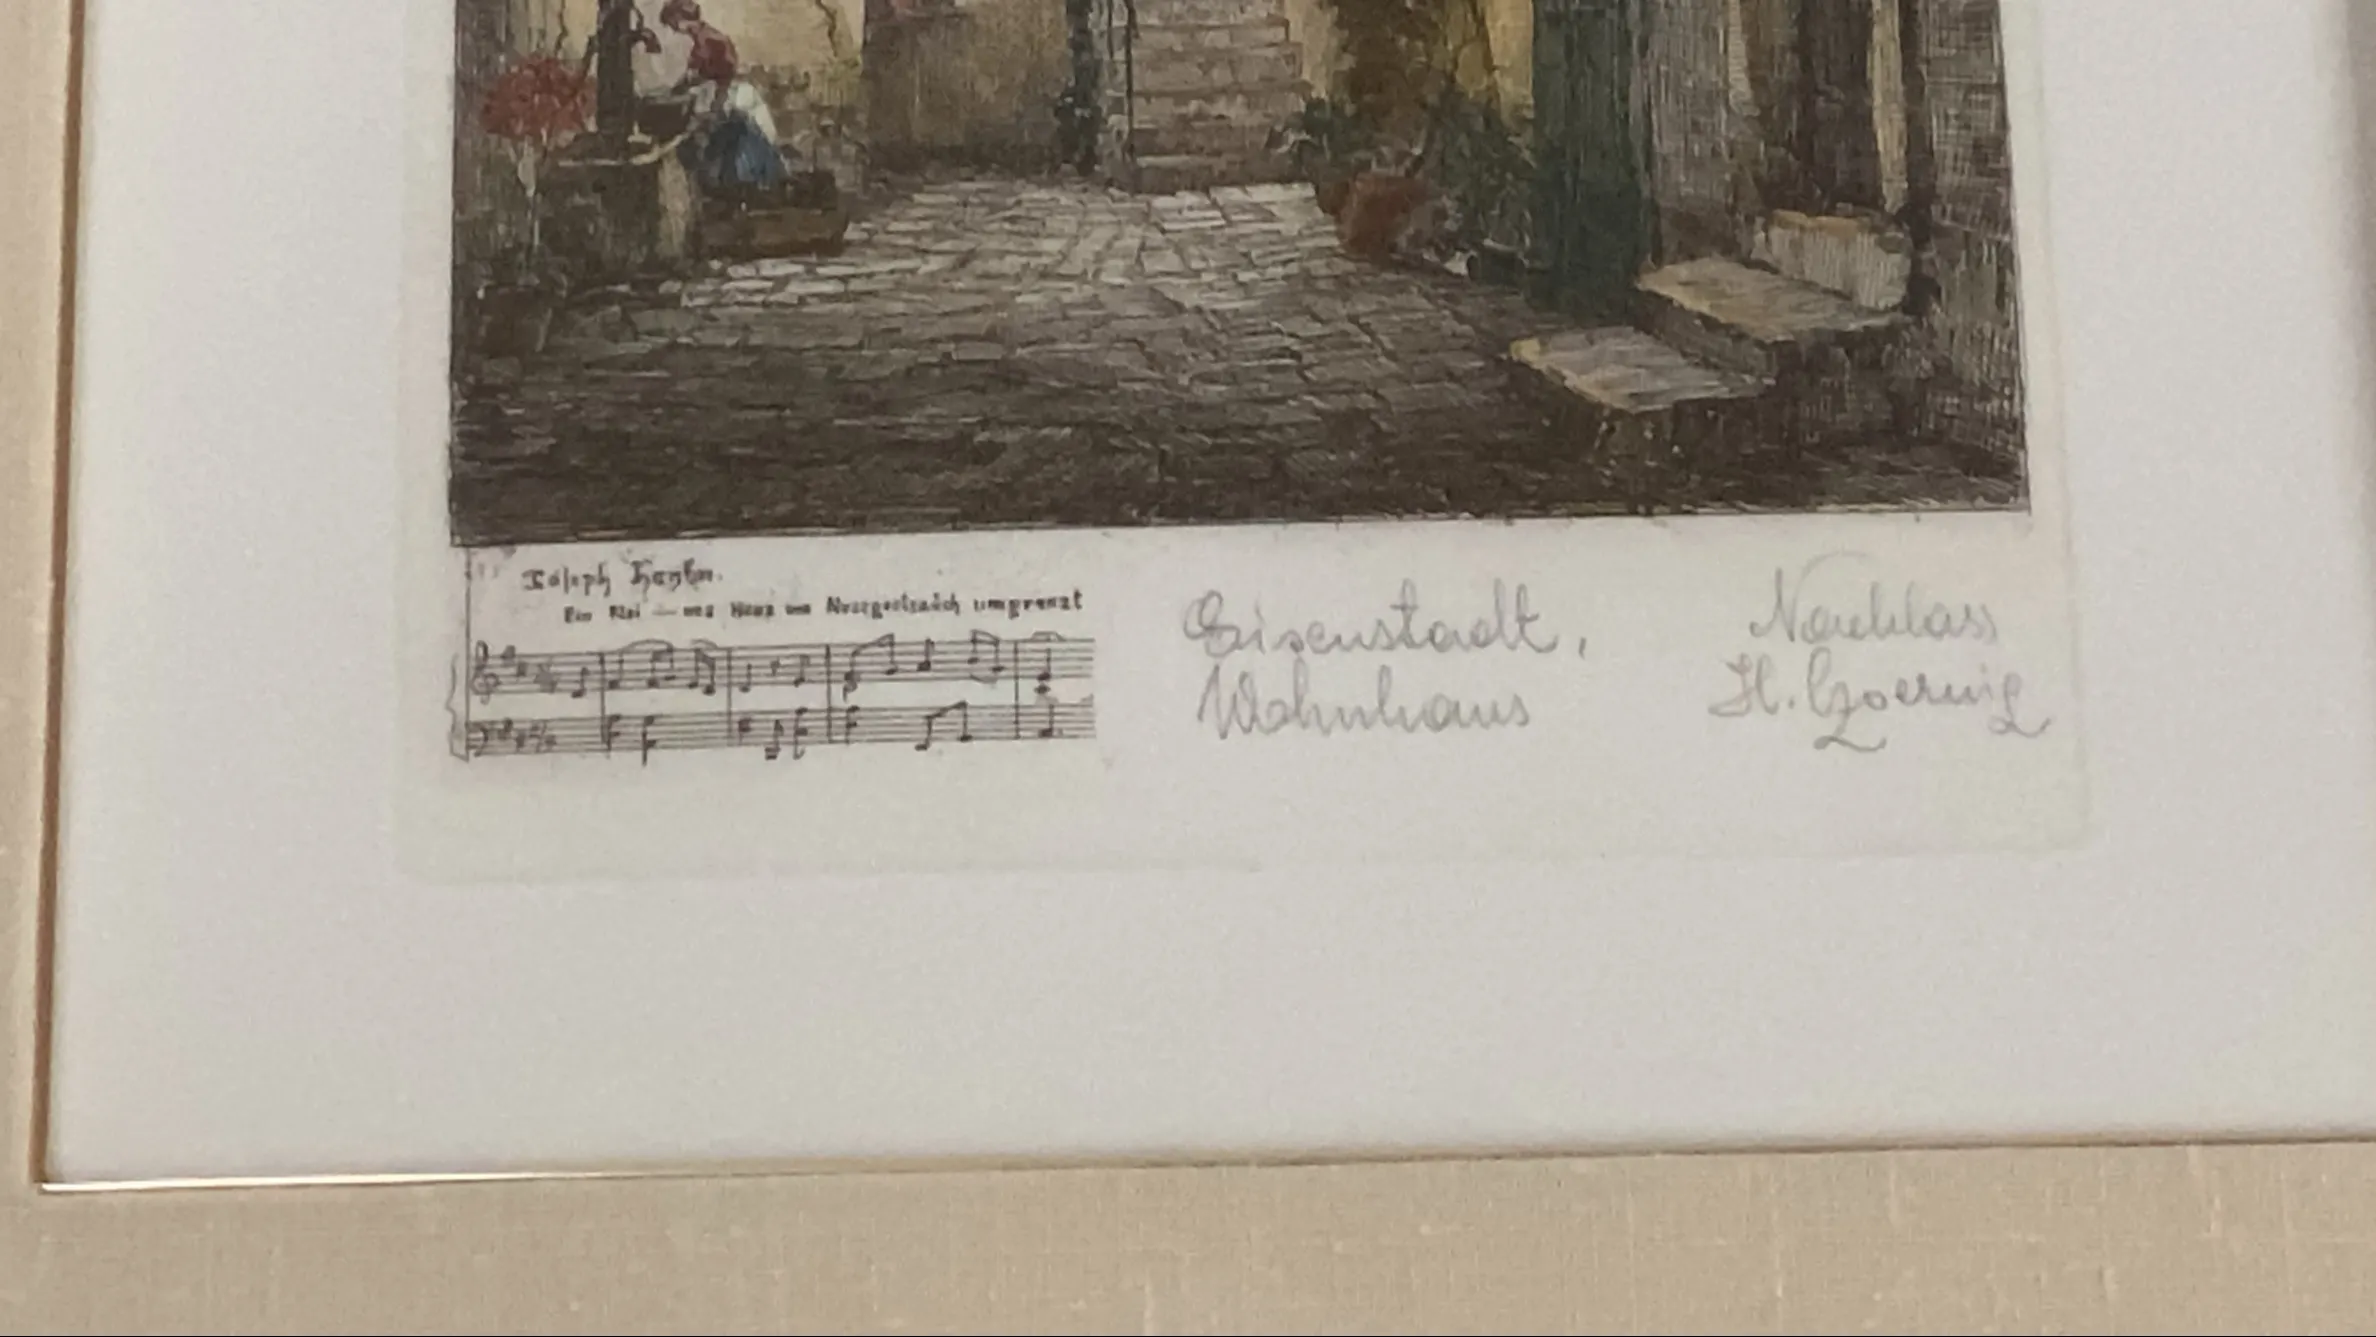 Joseph Haydn.
Ein Klei — nes Haus von Nussgesträuch umgrenzt
Eisenstadt,
Wohnhaus
Nachlass
H. Goering